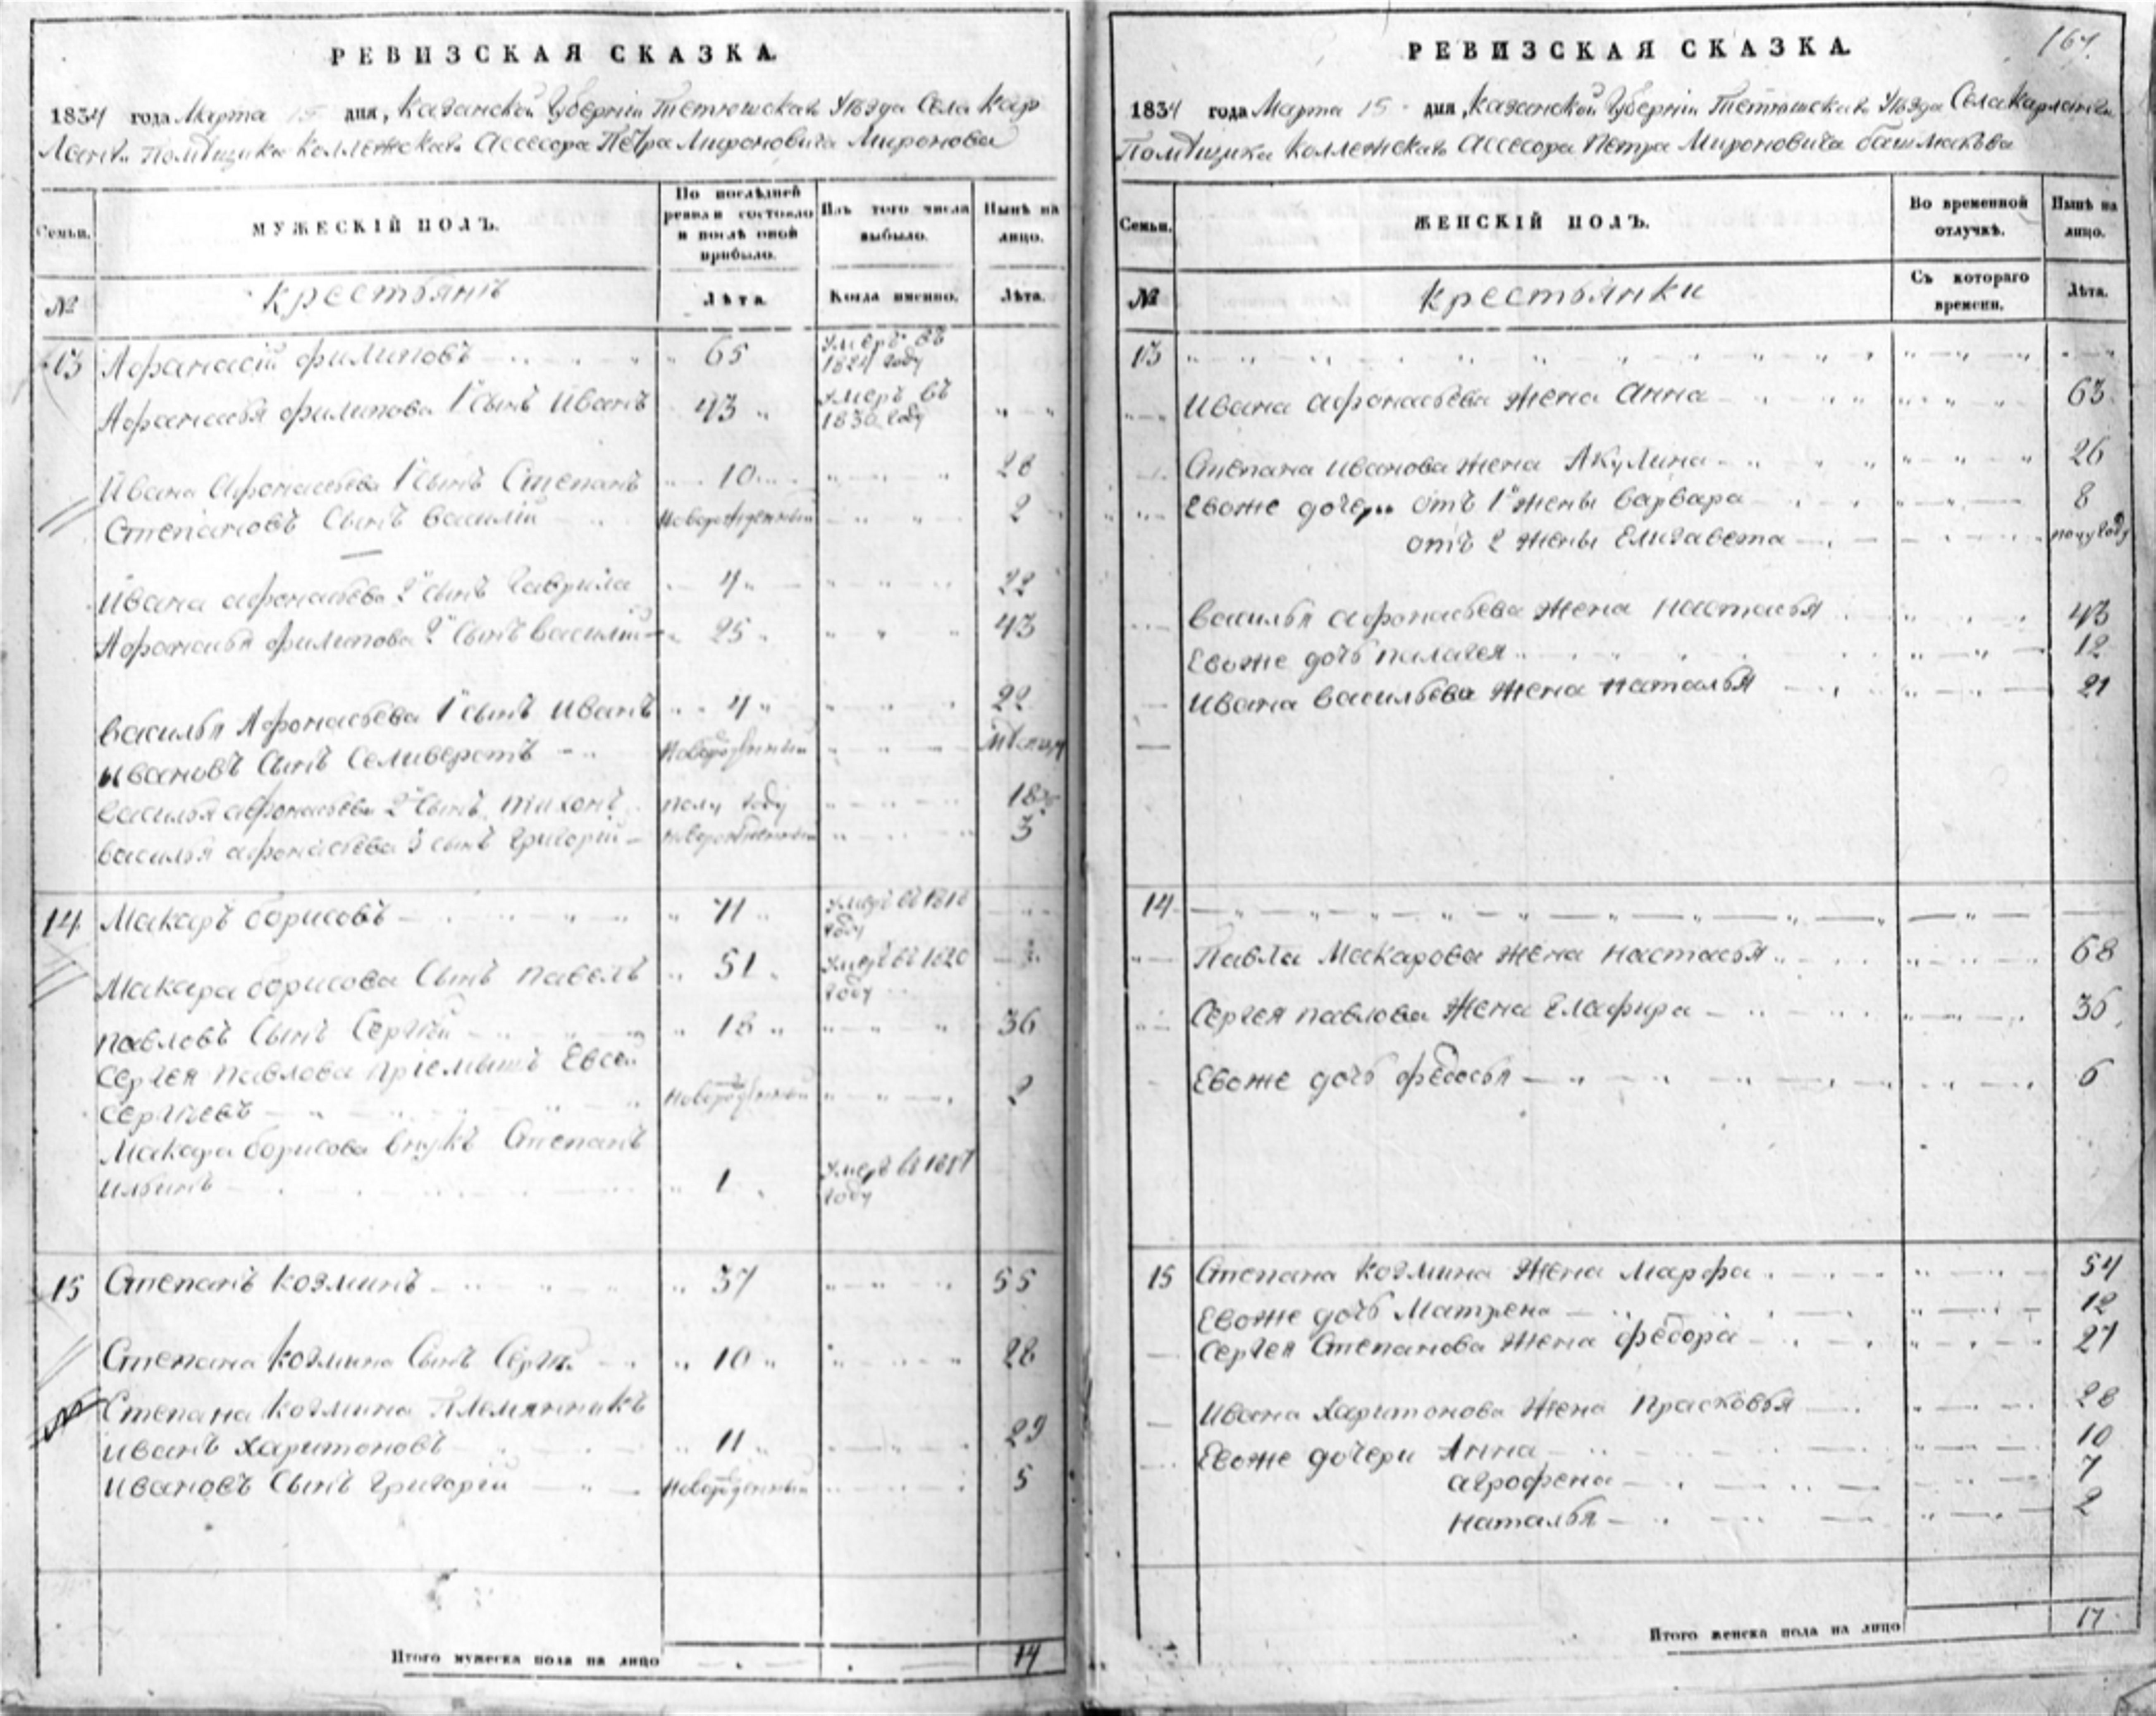 РЕВИЗСКАЯ СКАЗКА.
1834 года Марта 15 дня, Казанской Губерніи Тетюшскаго Уѣзда Села Кар
Помѣщика Коллежскаго Ассесора Пётра Мироновича Миронова
Семьи.
МУЖЕСКІЙ ПОЛЪ.
По послѣдней ревизіи состояло и послѣ оной прибыло.
Изъ того числа выбыло.
Нынѣ на лицо.
№
Крестьянъ
Лѣта.
Когда именно.
Лѣта.
13 Афанасій филиповъ 65 Умеръ въ 1824 году
Афанасья филипова 1й сынъ Иванъ 43 Умеръ въ 1830 году
Ивана Афонасьева 1 сынъ Степанъ 10 28
Степановъ сынъ василій Новорожденный 2
Ивана афонасьева 2й сынъ Гаврила 4 22
Афонасья филипова 2й сынъ василій 25 43
василья Афонасьева 1 сынъ иванъ 4 22
ивановъ сынъ Селиверстъ Новорожденный
василья афонасьева 2й сынъ тихонъ полу году 18½
василья афонасьева 3 сынъ григорій новорожденный 3
14 Макаръ борисовъ 71 Умеръ въ 1818 году
Макара борисова Сынъ павелъ 51 Умеръ въ 1820 году
павловъ Сынъ Сергѣй 18 36
Сергея павлова пріемышъ Евсей
Сергѣевъ Новорожденный 2
Макара борисова внукъ Степанъ
ильинъ 1 Умеръ въ году
15 Степанъ козминъ 37 55
Степана козмина Сынъ Сергѣй 10 28
Степана козмина Племянникъ
иванъ харитоновъ 11 29
ивановъ Сынъ григорій Новорожденный 5
Итого мужеска пола на лицо 14
РЕВИЗСКАЯ СКАЗКА.
167.
1834 года Марта 15 дня, Казанской Губерніи Тетюшскаго Уѣзда Села
Помѣщика Коллежскаго Ассесора Петра Мироновича башмакова
Семьи.
ЖЕНСКІЙ ПОЛЪ.
Во временной отлучкѣ.
Нынѣ на лицо.
№
Крестьянки
Съ котораго времени.
Лѣта.
13
Ивана афонасьева жена Анна 63
Степана иванова жена Акулина 26
Евоже дочери отъ 1й жены варвара 8
отъ 2 жены Елизавета полугоду
василья афонасьева жена настасья 43
Евоже дочь палагея 12
ивана васильева жена наталья 21
14
Павла Макарова жена настасья 68
Сергея павлова жена Глафира 36
Евоже дочь федосья 6
15 Степана козмина жена Марфа 54
Евоже дочь Матрена 12
Сергея Степанова жена федора 27
ивана харитонова жена Прасковья 28
Евоже дочери Анна 10
агрофена 7
наталья 2
Итого женска пола на лицо 17